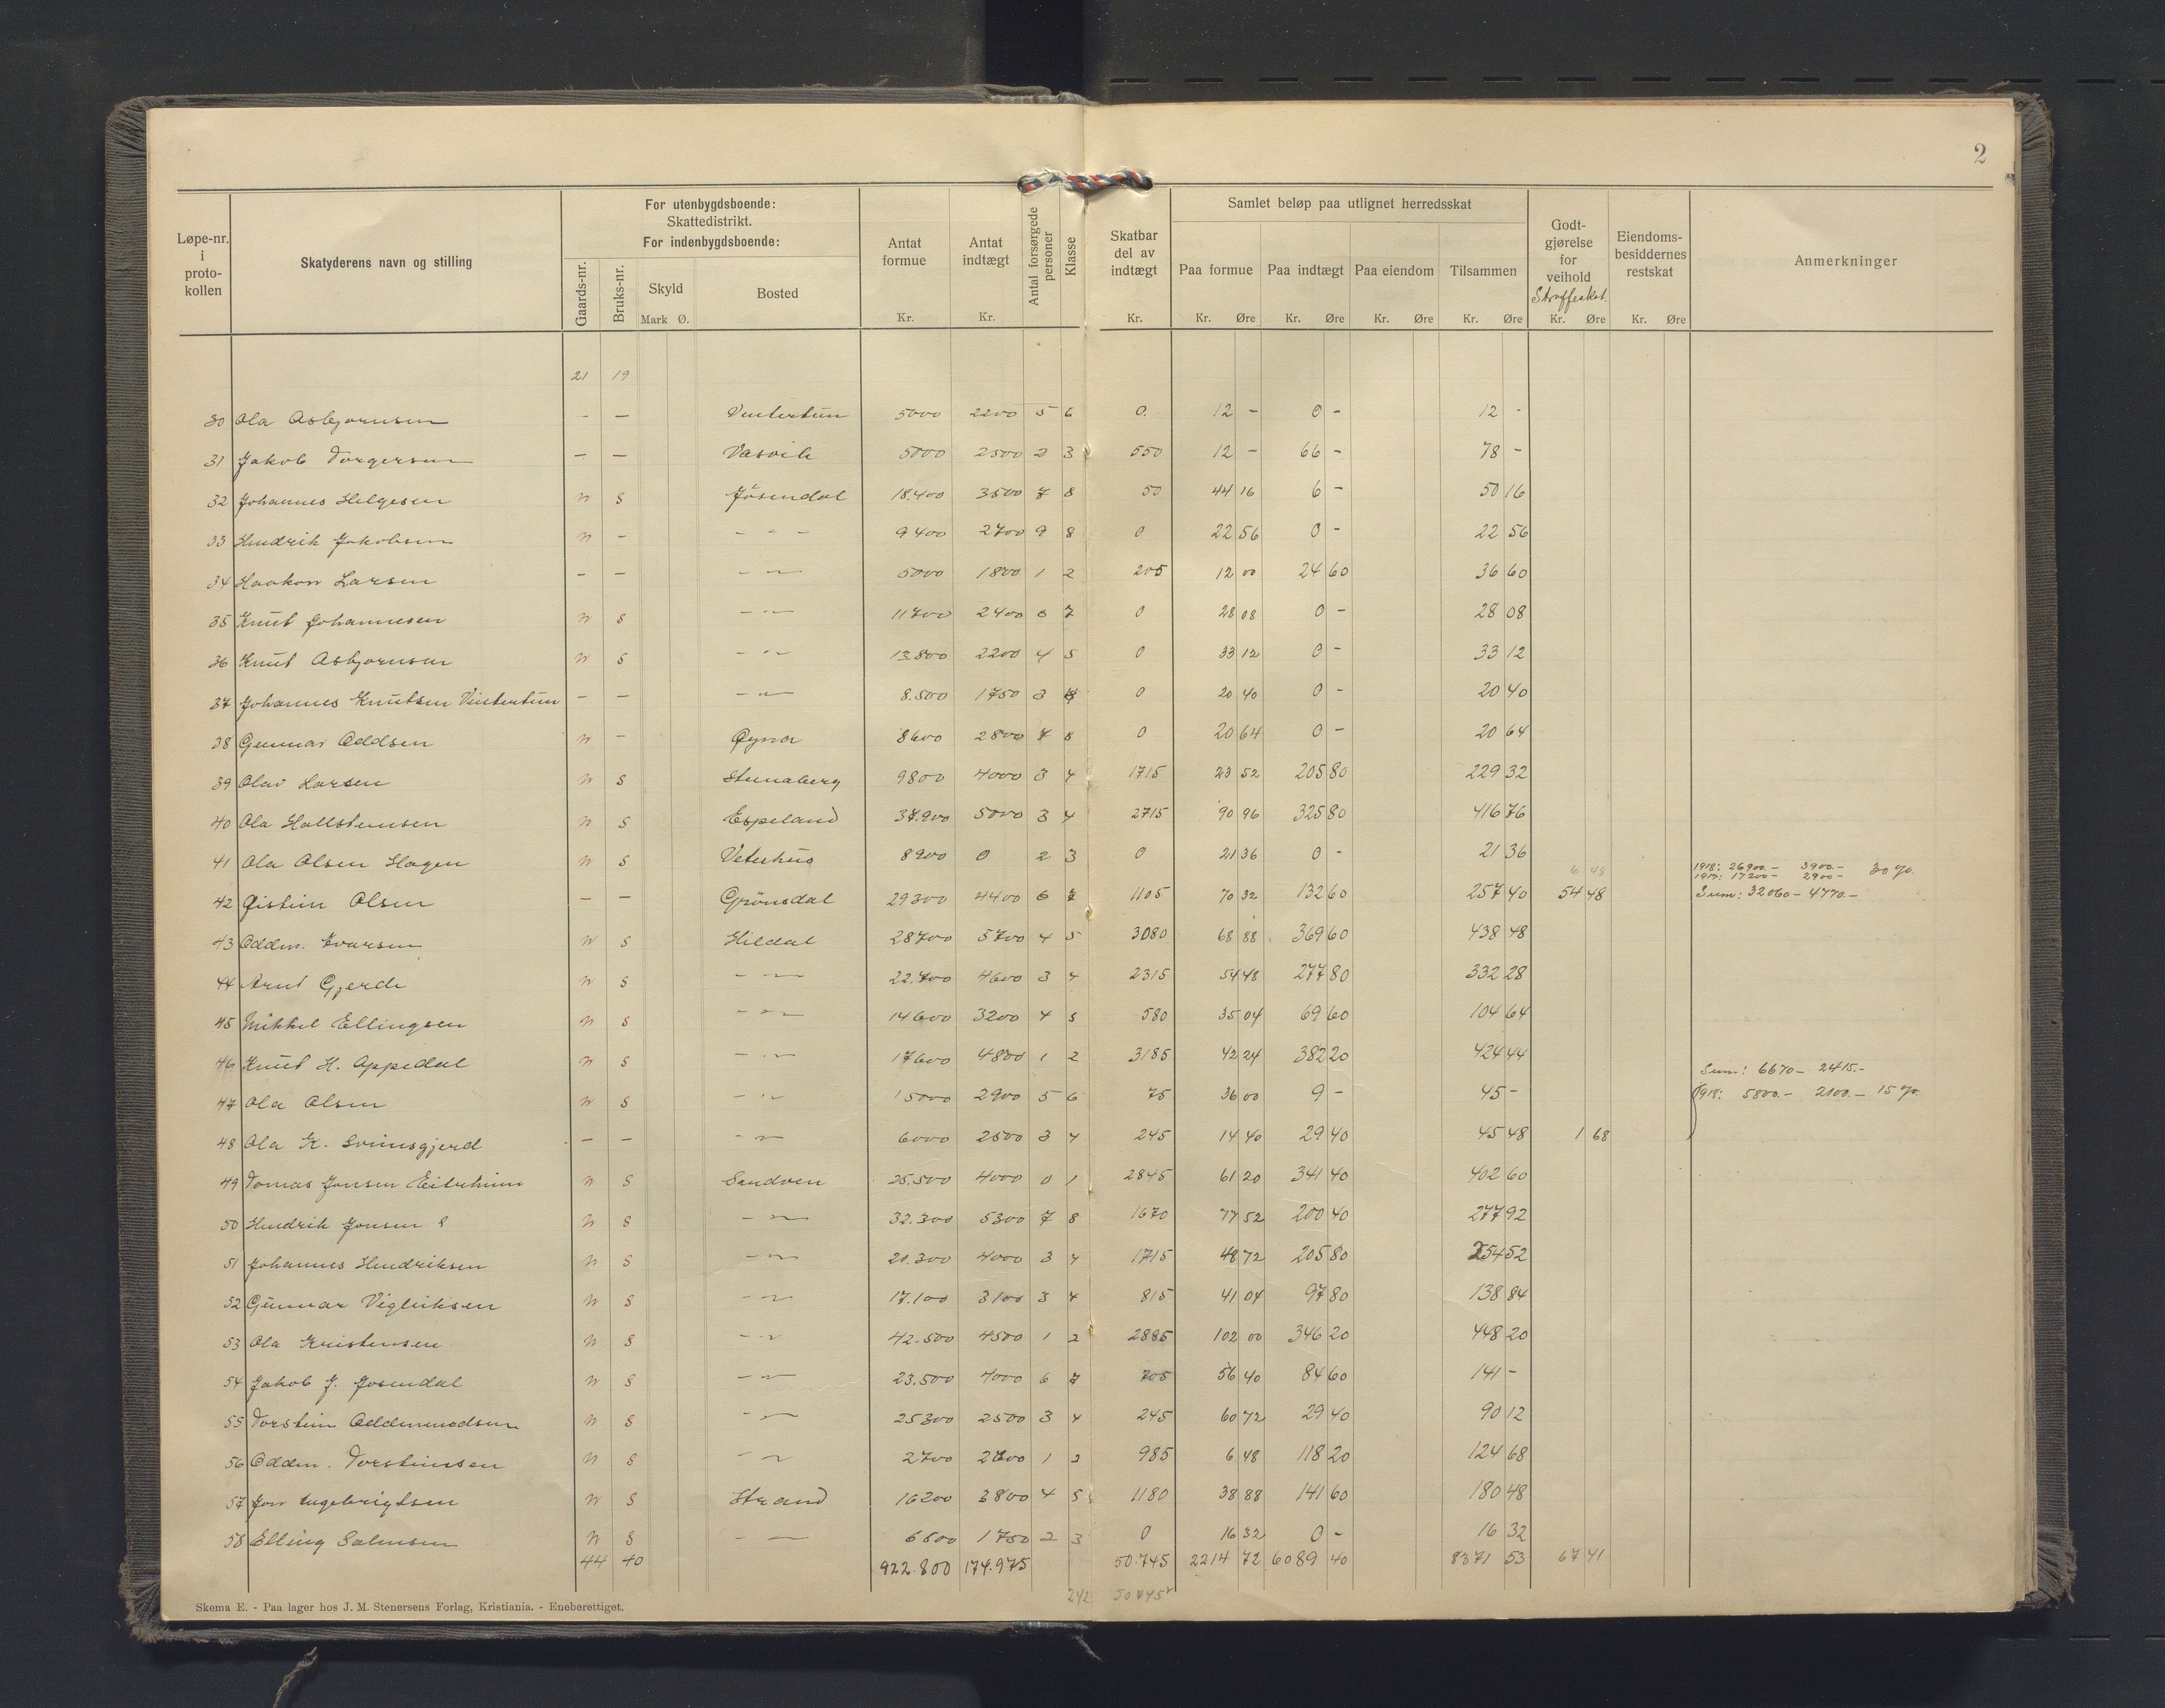 2
Løpe-nr. i proto-kollen | Skatyderens navn og stilling | For utenbygdsboende: Skattedistrikt. For indenbygdsboende: | Gaards-nr. | Bruks-nr. | Skyld Mark Ø. | Bosted | Antat formue Kr. | Antat indtægt Kr. | Antal forsørgede personer | Klasse | Skatbar del av indtægt Kr. | Samlet beløp paa utlignet herredsskat | Paa formue Kr. Øre | Paa indtægt Kr. Øre | Paa eiendom Kr. Øre | Tilsammen Kr. Øre | Godt-gjørelse for veihold Straffeskat. Kr. Øre | Eiendoms-besiddernes restskat Kr. Øre | Anmerkninger
21 19
30 Ola Asbjørnsen - — Vintertun 5000 2200 5 6 0. 12 - 0 - 12 -
31 Jakob Torgersen — — Vasvik 5000 2500 2 3 550 12 - 66 - 78 -
32 Johannes Helgesen n s Jösendal 18.400 3500 7 8 50 44 16 6 - 50 16
33 Hendrik Jakobsen n - - - - 9400 2700 9 8 0 22 56 0 - 22 56
34 Haakon Larsen - - - " - 5000 1800 1 2 205 12 00 24 60 36 60
35 Knut Johannesen n s - " - 11700 2400 6 7 0 28 08 0 - 28 08
36 Knut Asbjørnsen n s - " - 13.800 2200 4 5 0 33 12 0 - 33 12
37 Johannes Knutsen Vintertun — — - " - 8.500 1750 3 4 0 20 40 0 - 20 40
38 Gunnar Oddsen n - Øyna 8600 2800 7 8 0 20 64 0 - 20 64
39 Olav Larsen n s Stenaberg 9800 4000 3 4 1715 23 52 205 80 229 32
40 Ola Hallstensen n s Espeland 37.900 5000 3 4 2715 90 96 325 80 416 76
41 Ola Olsen Hagen n s Veterhus 8900 0 2 3 0 21 36 0 - 21 36
6 48 1918: 26900.- 3900.- 30 %.
1917: 17200 - 2900 -
42 Øistein Olsen — — Grönsdal 29300 4400 6 7 1105 70 32 132 60 257 40 54 48 Sum: 32060 - 4770.-
43 Oddm. Ivarsen n s Hildal 28700 5700 4 5 3080 68 88 369 60 438 48
44 Arnt Gjerde n s - " - 22.700 4600 3 4 2315 54 48 277 80 332 28
45 Mikkel Ellingsen n s - " - 14600 3200 4 5 580 35 04 69 60 104 64
46 Knut H. Appedal n s - " - 17600 4800 1 2 3185 42 24 382 20 424 44
Sum: 6670 - 2415.-
47 Ola Olsen n s - " - 15000 2900 5 6 75 36 00 9 - 45 - 1918: 5800.- 2100.- 15 %
48 Ola K. Svinsgjerd — — - " - 6000 2500 3 4 245 14 40 29 40 45 48 1 68
49 Tomas Jonsen Eitrheim n s Sandven 25.500 4000 0 1 2845 61 20 341 40 402 60
50 Hendrik Jonsen n s - " - 32.300 5300 7 8 1670 77 52 200 40 277 92
51 Johannes Hendriksen n s - " - 20.300 4000 3 4 1715 48 72 205 80 254 52
52 Gunnar Vigleiksen n s - " - 17.100 3100 3 4 815 41 04 97 80 138 84
53 Ola Kristensen n s - " - 42.500 4500 1 2 2885 102 00 346 20 448 20
54 Jakob J. Josendal n s - " - 23.500 4000 6 7 705 56 40 84 60 141 -
55 Torstein Oddmundsen n s - " - 25300 2500 3 4 245 60 72 29 40 90 12
56 Oddm. Torsteinsen n s - " - 2700 2600 1 2 985 6 48 118 20 124 68
57 Jon Ingebrigtsen n s Strand 16200 3800 4 5 1180 38 88 141 60 180 48
58 Elling Salmsen n s - — 6800 1750 2 3 0 16 32 0 - 16 32
44 40 922.800 174.975 50.745 2214 72 6089 40 8371 53 67 41
242 50745
Skema E. - Paa lager hos J. M. Stenersens Forlag, Kristiania. - Eneberettiget.